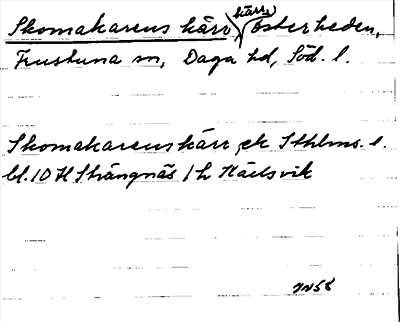 Skomakarens kärr, kärr, Österheden,
Frustuna sn, Daga hd, Söd. l.
Skomakarens kärr, ek Sthlms. l.
bl. 10 H Strängnäs 1 h